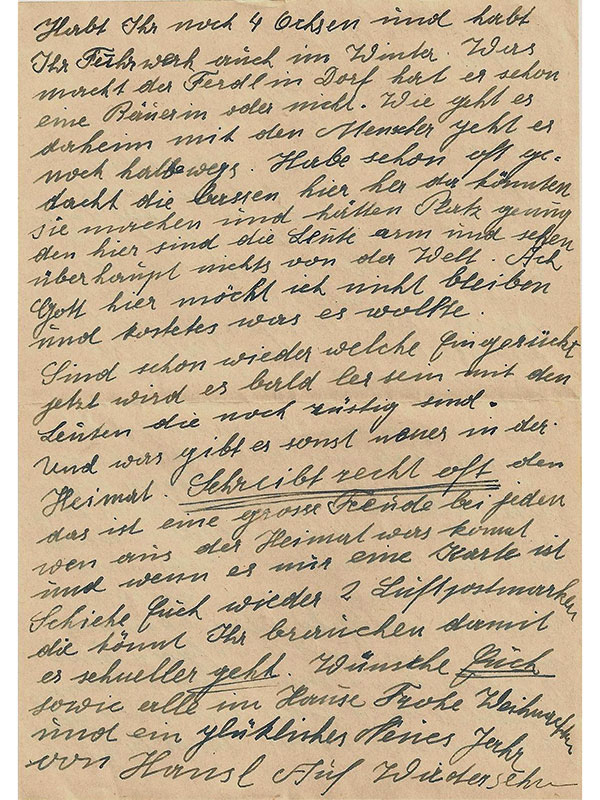 Habt Ihr noch 4 Ochsen und habt
Ihr Fuhrwerk auch im Winter. Was
macht der Ferdl in Dorf hat er schon
eine Bäuerin oder nicht. Wie geht es
daheim mit den geht es
noch halbwegs. Habe schon oft ge-
dacht die lassen hier her da könnten
sie machen und hätten Platz genug
den hier sind die Leute arm und sehen
überhaupt nichts von der Welt. Ach
Gott hier möcht ich nicht bleiben
und kostetes was es wollte.
Sind schon wieder welche Eingerückt
jetzt wird es bald ler sein mit den
Leuten die noch rüstig sind.
Und was gibt es sonst neues in der
Heimat. Schreibt recht oft den
das ist eine grosse Freude bei jeden
wen aus der Heimat was komt
und wenn es nur eine Karte ist
Schicke Euch wieder 2 Luftpostmarken
die könnt Ihr brauchen damit
es schneller geht. Wünsche Euch
sowie alle im Hause Frohe Weihnachten
und ein glükliches Neues Jahr
von Hansl Auf Wiedersehn